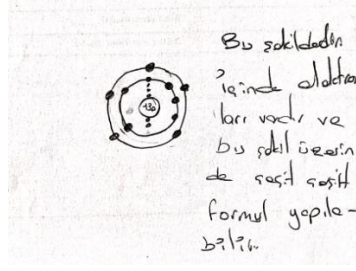 Bu şekildedin
içinde elektron
ları vardır ve
bu şekil üzerin
de çeşit çeşit
formül yapıla-
bilir.